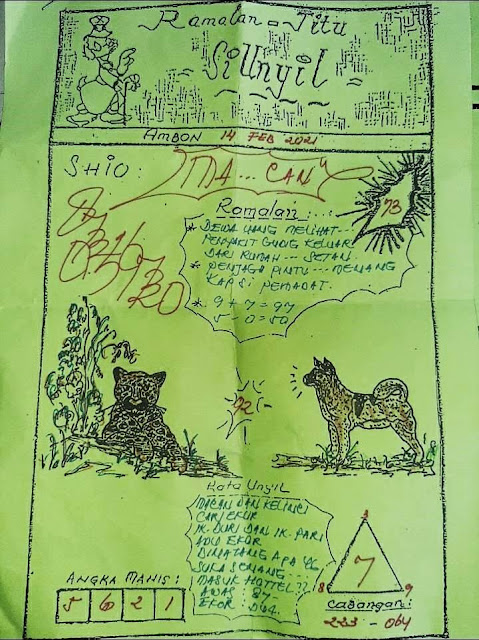 Ramalan = Jitu
Si Unyil
AMBON 14 FEB 2021
SHIO:
"MA... CAN"
73
Ramalan:
* DEWA UANG MELIHAT---
PENYAKIT GUDIG KELUAR
DARI RUMAH --- SETAN.
* PENJAGA PINTU --- MEMANG
KAPSI PEMADAT.
* 9 + 7 = 97
5 - 0 = 50
92
Kata Unyil
MACAN DAN KELINCI
CARI EKOR
IK. DURI DAN IK. PARI
ADU EKOR
BINATANG APA YG
SUKA SENANG ---
MASUK HOTTEL ??
AWAS : 87
EKOR : 064.
ANGKA MANIS:
5 6 2 1
3
7
8 9
CADANGAN:
233 - 064